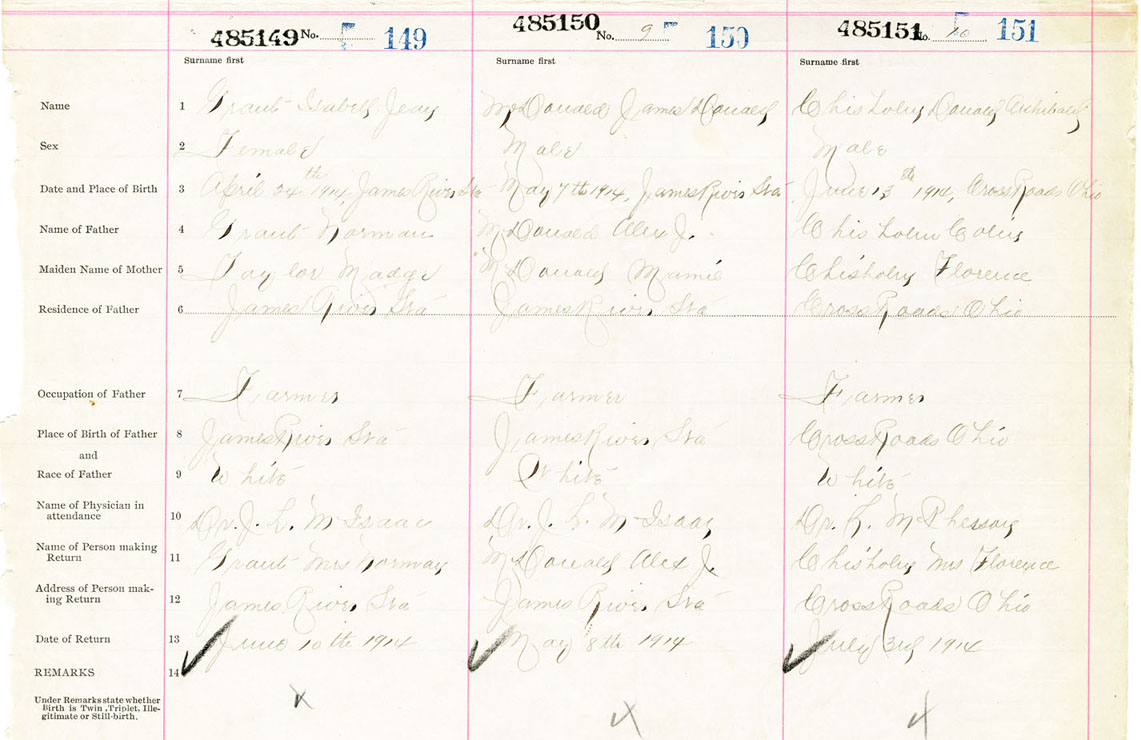 485149 No. 149 485150 No. 9 150 485151 No. 10 151
Surname first Surname first Surname first
Name 1 Grant Isabell Jean McDonald James Donald Chisholm Donald Archibald
Sex 2 Female Male Male
Date and Place of Birth 3 April 24th 1914, James River Sta May 7th 1914, James River Sta June 13th 1914, Cross Roads Ohio
Name of Father 4 Grant Norman McDonald Alex J. Chisholm Colin
Maiden Name of Mother 5 Taylor Madge McDonald Mamie Chisholm Florence
Residence of Father 6 James River Sta James River Sta Cross Roads Ohio
Occupation of Father 7 Farmer Farmer Farmer
Place of Birth of Father 8 James River Sta James River Sta Cross Roads Ohio
and
Race of Father 9 White White White
Name of Physician in
attendance 10 Dr. J. L. McIsaac Dr. J. L. McIsaac Dr. K. McPherson
Name of Person making
Return 11 Grant Mrs Norman McDonald Alex J. Chisholm Mrs Florence
Address of Person mak-
ing Return 12 James River Sta James River Sta Cross Roads Ohio
Date of Return 13 June 10th 1914 May 8th 1914 July 3rd 1914
REMARKS 14
Under Remarks state whether
Birth is Twin, Triplet, Ille-
gitimate or Still-birth. x x x